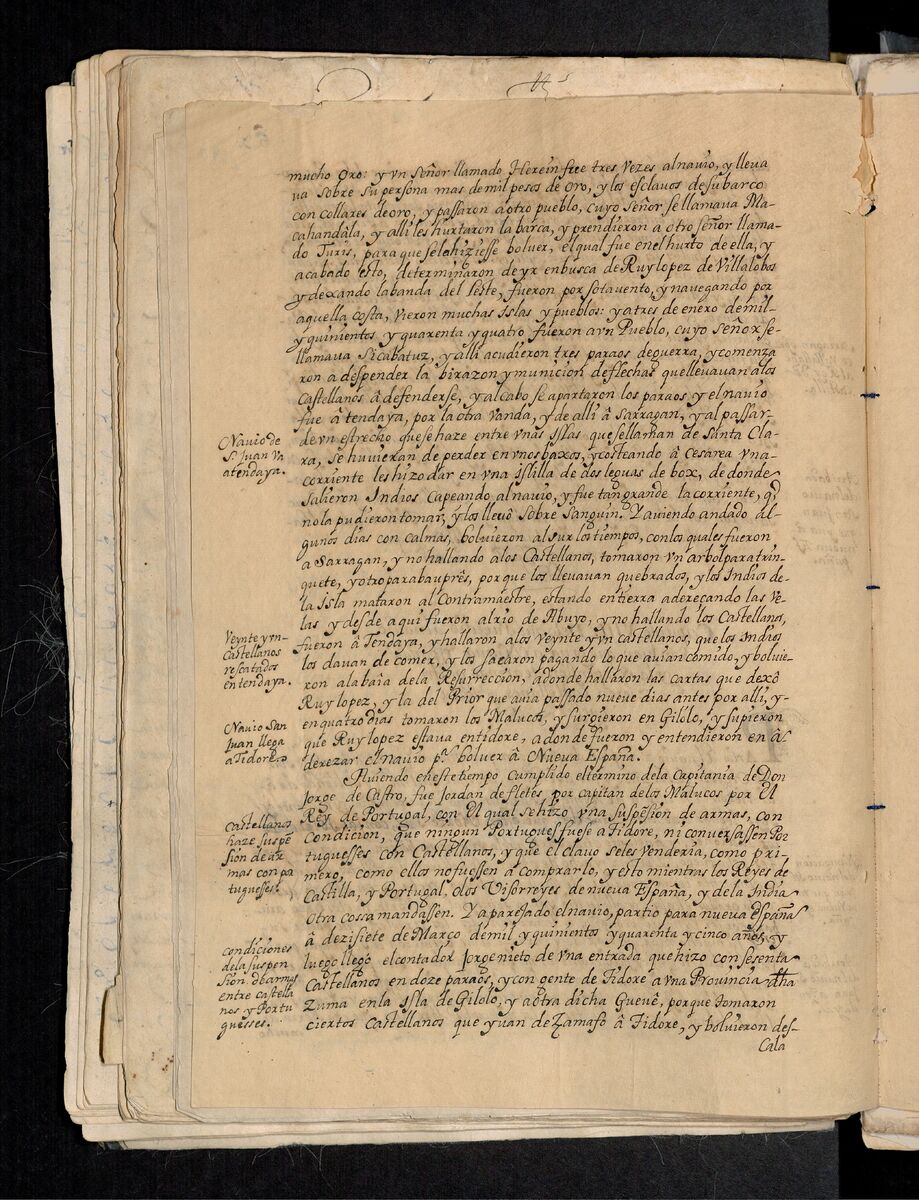 mucho Oro: y vn Señor llamado Herein fue tres vezes al navio, y lleva
va sobre su persona mas de mil pesos de Oro, y los esclavos de su barco
con collares de oro, y passaron a otro pueblo, cuyo Señor se llamava Ma-
cahandàla, y alli les hurtaron la barca, y prendieron a otro señor llama-
do Turis, para que se le hiziesse bolver, el qual fue en el hurto de ella, y
acabado esto, determinaron de yr en busca de Ruy lopez de Villalobos
y dexando la banda del leste, fueron por sotavento, y navegando por
aquella costa, vieron muchas Islas y pueblos: y a tres de enero de mil-
y quinientos y quarenta y quatro fueron a vn Pueblo, cuyo Señor se-
llamava Sicabatuz, y alli acudieron tres paraos de guerra, y comenza
ron a despender la birazon y municion de flechas que llevavan a los
Castellanos â defenderse, y al cabo se apartaron los paraos y el navio
fue â tendaya, por la otra vanda, y de alli â Sarragan, y al passar-
de vn estrecho que se haze entre vnas Islas que se llaman de Santa Cla-
ra, se huvieran de perder en vnos baxos, y costeando â Cesarea vna
corriente les hizo dar en vna islilla de dos leguas de box, de donde
salieron Indios capeando al navio, y fue tan grande la corriente, q̃
no la pudieron tomar, y los llevô sobre Sanguin. Y aviendo andado al-
gunos dias con calmas, bolvieron al sur los tiempos, con los quales fueron
a Sarragan, y no hallando a los Castellanos, tomaron vn arbol para trin-
quete, y otro para bauprês, por que los llevavan quebrados, y los Indios de-
la Isla mataron al Contramaestre, estando en tierra adereçando las ve-
las y desde aqui fueron al rio de Abuyo, y no hallando los Castellanos,
fueron â Tendaya, y hallaron a los veynte y vn castellanos, que los Indios
los davan de comer, y los sacaron pagando lo que avian comido, y bolvie-
ron a la baîa de la Resurrección, adonde hallaron las cartas que dexô
Ruy lopez, y la del Prior que avia passado nueve dias antes por alli, y-
en quatro dias tomaron los Malucos, y surgieron en Gilôlo, y supieron
que Ruy lopez estava en tidore, a donde fueron y entendieron en â-
derezar el navio p.ª bolver â Nueva España.
Aviendo en este tiempo cumplido el termino de la Capitania de Don
Jorge de Castro, fue Jordan de fletes por capitan de los Malucos por el
Rey de Portugal, con el qual se hizo vna suspẽsion de armas, con
condicion, que ningun Portugues fuese a Tidore, ni conversassen Por
tuguesses con Castellanos, y que el clavo se les venderia, como pri-
mero, como ellos no fuessen a comprarlo, y esto mientras los Reyes de
Castilla, y Portugal, o los Visorreyes de nueva España, y de la India
otra cossa mandassen. Y aparejado el navio, partio para nueva españa
â dezisiete de Março de mil y quinientos y quarenta y cinco años, y
luego llego el contador Jorge nieto de vna entrada que hizo con sesenta
Castellanos en doze paraos, y con gente de Tidore a vna Provincia dha
Zuma en la Isla de Gilolo, y a otra dicha Gueuê, porque tomaron
ciertos castellanos que yuan de Zamafo â Tidore, y bolvieron des-
Cala
Navio de
S. Juan va
a tendaya.
Veynte y vn-
Castellanos
rescatados
en tendaya.
Navio San
Juan llega
a Tidore
Castellanos
haze suspẽ
sion de ar
mas con po
tuguesses.
Condiciones
de la suspen
sion de armas
entre castella
nos y Portu
guesses.